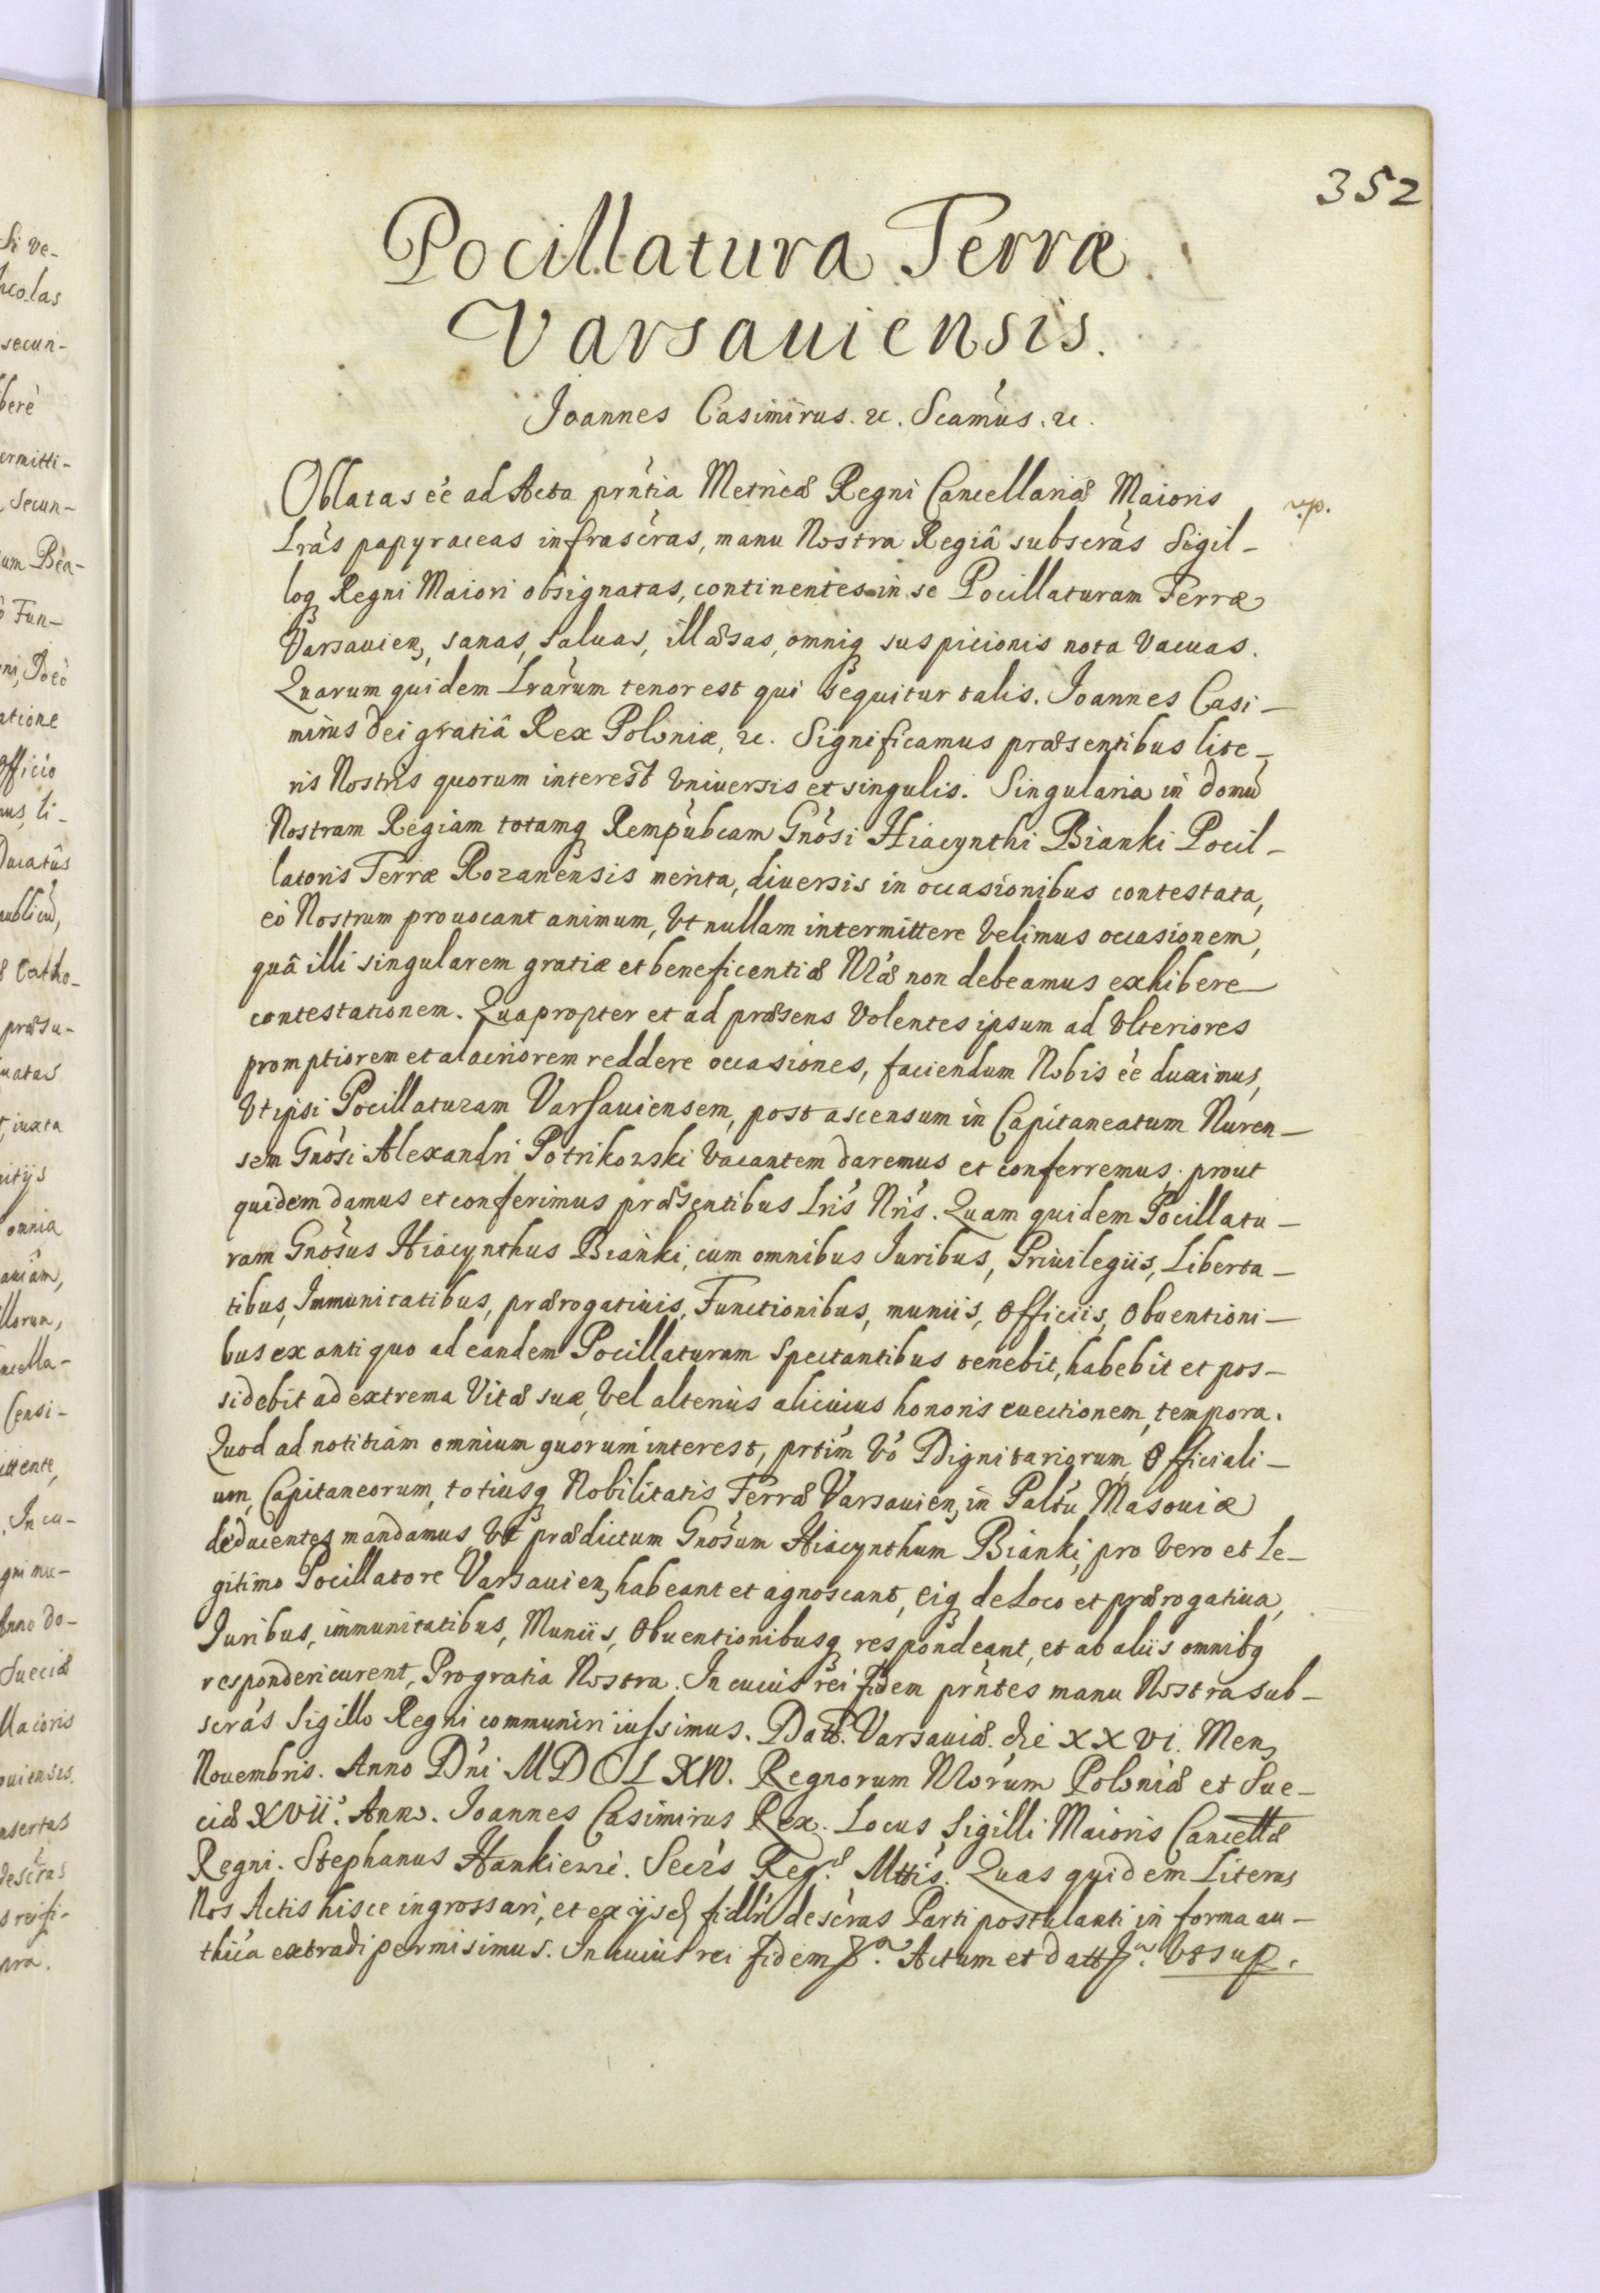 352
Pocillatura Terræ
Varsauiensis.
Joannes Casimirus. &c. Scamus. &c.
Oblatas ee ad Acta prntia Metricæ Regni Cancellariæ Maioris
Lras papyraceas infrascras, manu Nostra Regiâ subscras Sigil-
loq Regni Maiori obsignatas, continentes in se Pocillaturam Terræ
Varsauien, sanas, saluas, illæsas, omniq suspicionis nota vacuas.
Quarum quidem Lrarum tenor est qui sequitur talis. Joannes Casi-
mirus Dei gratiâ Rex Poloniæ, &c. Significamus præsentibus lite-
ris Nostris quorum interest Vniuersis et singulis. Singularia in domu
Nostram Regiam totamq Rempubcam Gnosi Hiacynthi Bianki Pocil-
latoris Terræ Rozanensis merita, diuersis in occasionibus contestata,
eò Nostrum prouocant animum, Vt nullam intermittere Velimus occasionem,
quâ illi singularem gratiæ et beneficentiæ Nræ non debeamus exhibere
contestationem. Quapropter et ad præsens Volentes ipsum ad Vlteriores
promptiorem et alacriorem reddere occasiones, faciendum Nobis ee duximus,
Vt ipsi Pocillaturam Varsauiensem, post ascensum in Capitaneatum Nuren-
sem Gnosi Alexandri Potrikowski Vacantem daremus et conferremus, prout
quidem damus et conferimus præsentibus Lris Nris. Quam quidem Pocillatu-
ram Gnosus Hiacynthus Bianki, cum omnibus Juribus, Priuilegiis, Liberta-
tibus, Immunitatibus, prærogatiuis, Functionibus, muniis, Officiis, Obuentioni-
bus ex antiquo ad eandem Pocillaturam Spectantibus tenebit, habebit et pos-
sidebit ad extrema Vitæ suæ, Vel alterius alicuius honoris euectionem, tempora.
Quod ad notitiam omnium quorum interest, prtim Vo Dignitariorum, Officiali-
um, Capitaneorum, totiusq Nobilitatis Terræ Varsauien, in Paltu Masouiæ
deducentes mandamus, Vt prædictum Gnosum Hiacynthum Bianki, pro Vero et Le-
gitimo Pocillatore Varsauien, habeant et agnoscant, eiq de Loco et prærogatiua,
Juribus, immunitatibus, Muniis, Obuentionibusq respondeant, et ab aliis omnibq
responderi curent, Pro gratia Nostra. In cuius rei fidem prntes manu Nostra sub-
scras Sigillo Regni communiri iussimus. Datt. Varsauiæ. die XXVI. Men,
Nouembris. Anno Dni MDCLXIV. Regnorum Nrorum Poloniæ et Sue-
ciæ XVII. Anno. Joannes Casimirus Rex. Locus Sigilli Maioris Cancellæ
Regni. Stephanus Hankiewic. Secrs Regæ. Mttis. Quas quidem Literas
Nos Actis hisce ingrossari, et ex ijsd fidlr descras Parti postulanti in forma au-
thica extradi permisimus. In cuius rei fidem Actum et datt Vt sup.